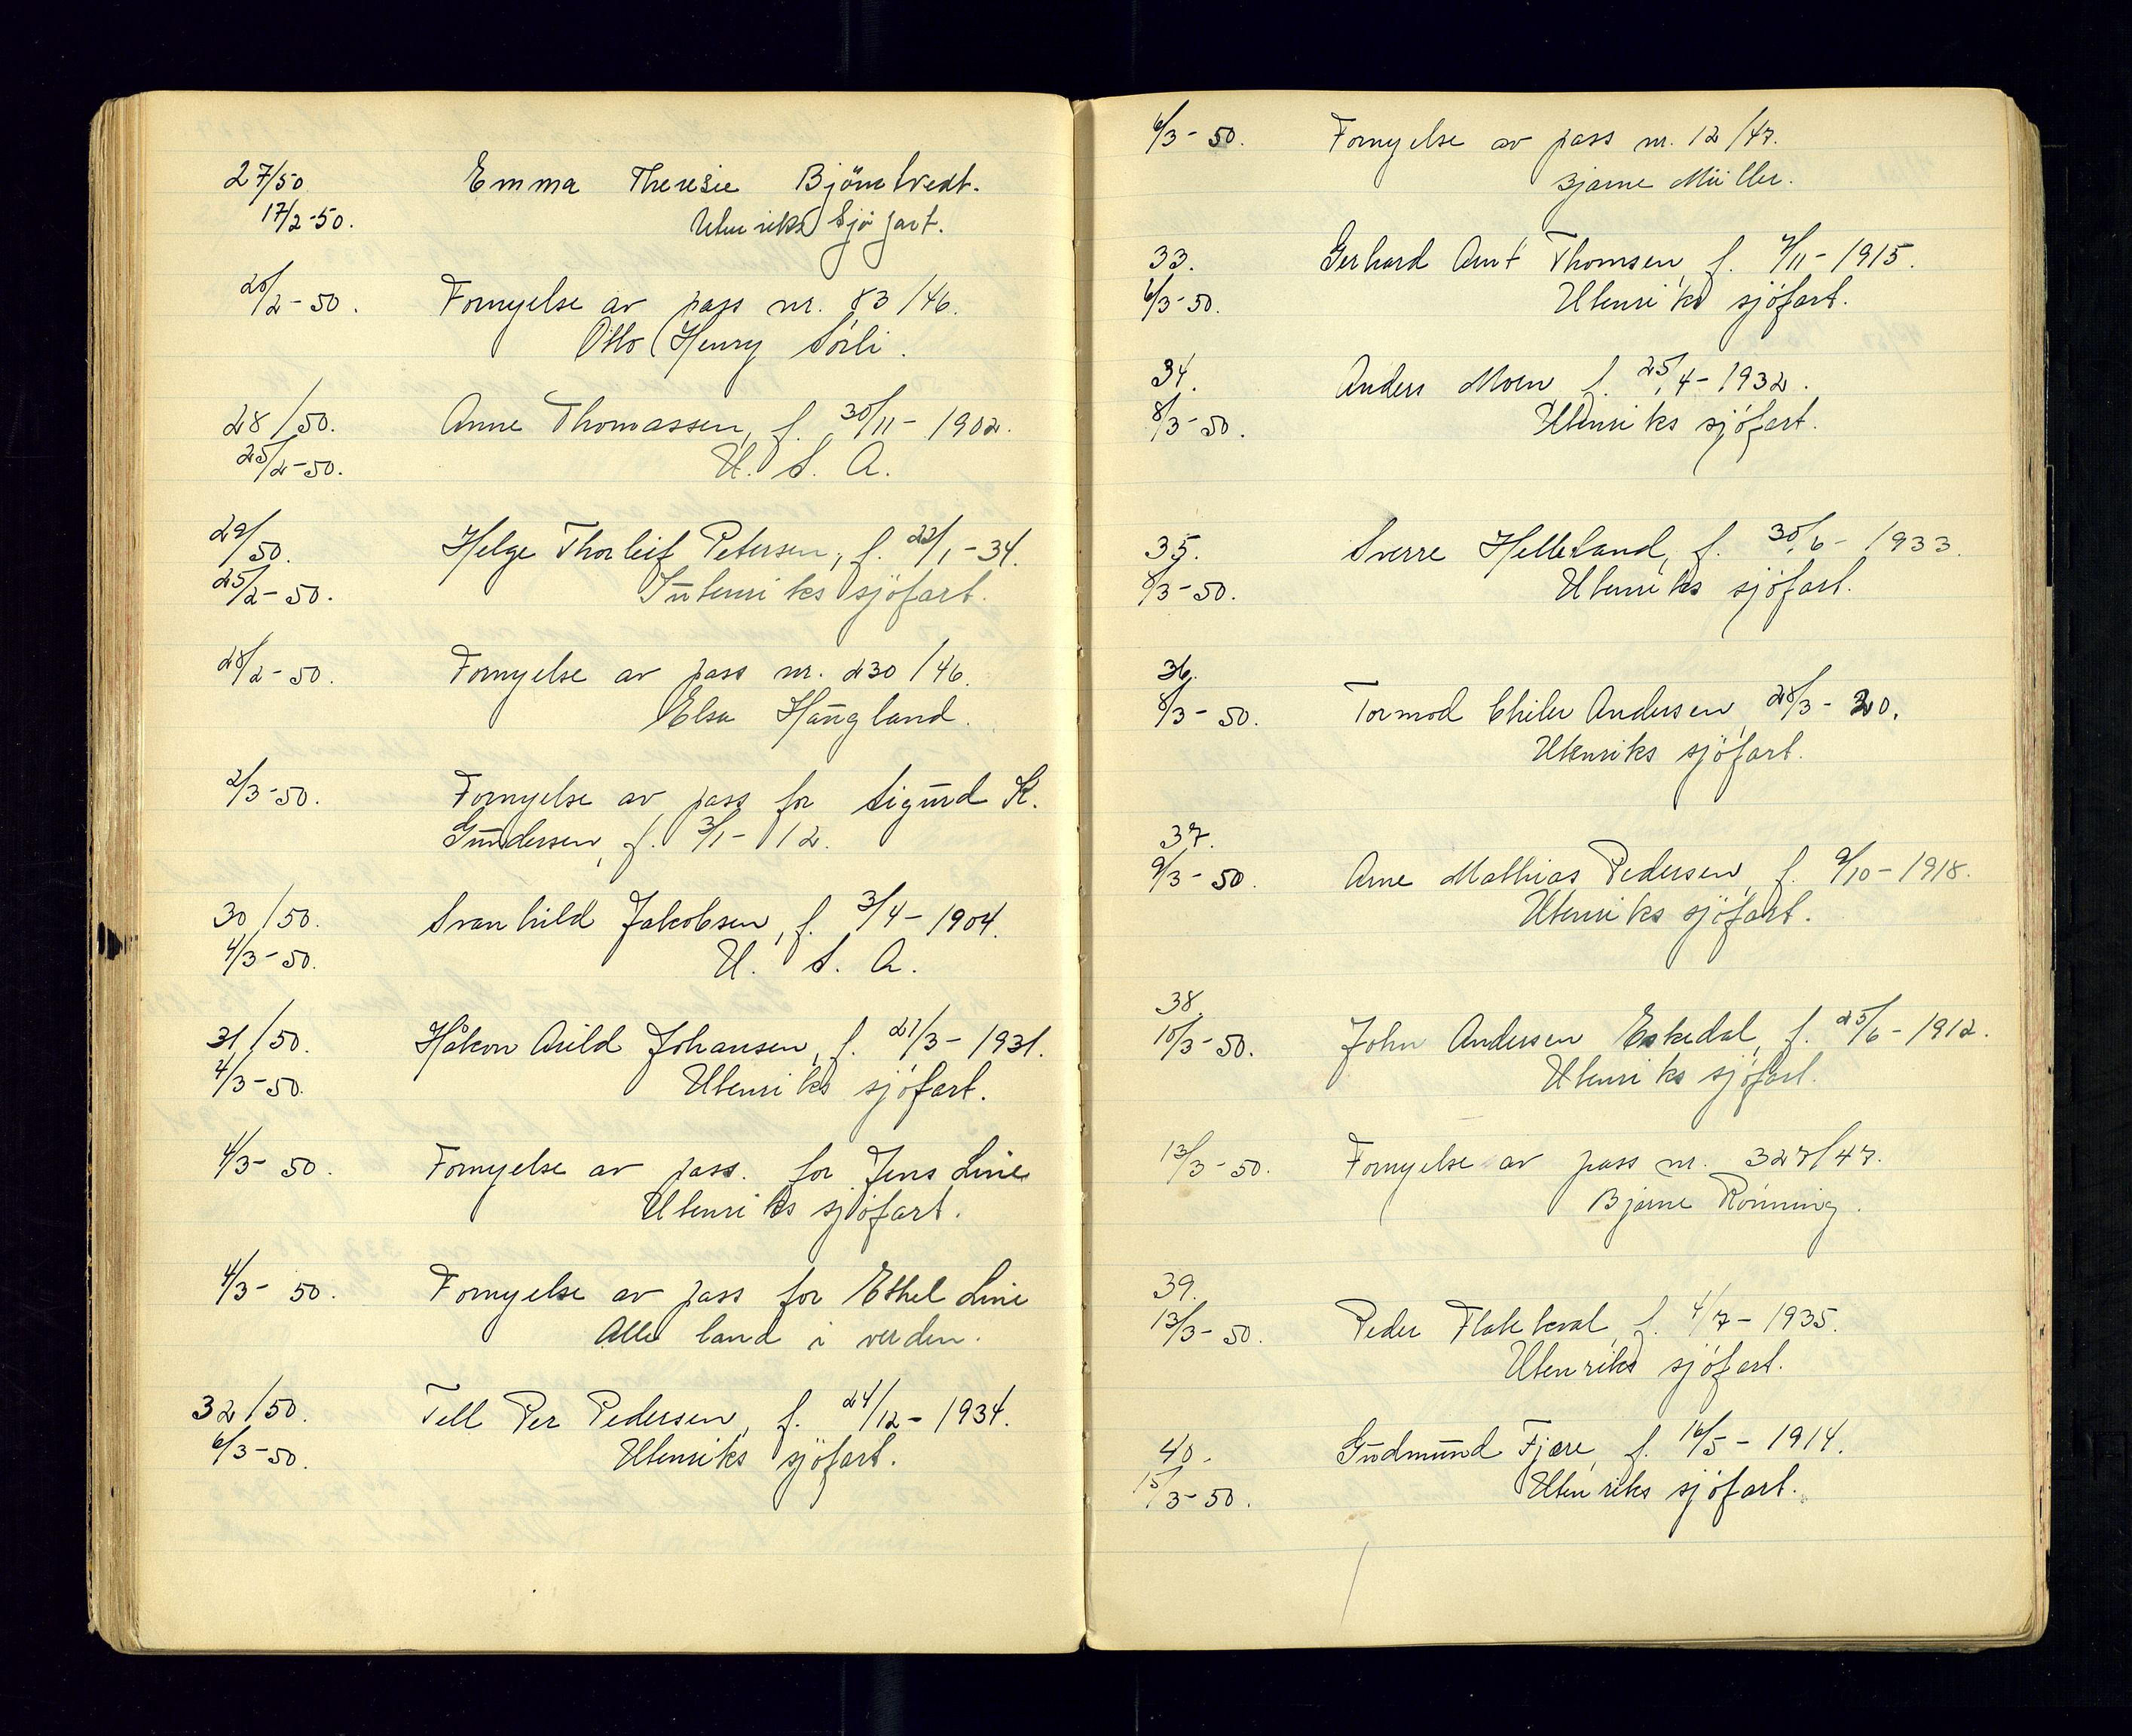 27/50 Emma Theresie Björnstvedt.
17/2-50. Utenriks Sjöfart.
20/2-50. Fornyelse av pass nr. 83/46.
Otto Henry Sörli.
28/50. Anne Thomassen, f. 30/11-1902.
25/2-50. U. S. A.
29/50. Helge Thorleif Petersen, f. 22/1-34.
25/2-50. Sutenriks sjöfart.
28/2-50. Fornyelse av pass nr. 230/46.
Elsa Haugland.
2/3-50. Fornyelse av pass for Sigurd K.
Gundersen, f. 3/1-12.
30/50. Svanhild Jakobsen, f. 3/4-1904.
4/3-50. U. S. A.
31/50. Håkon Arild Johansen, f. 21/3-1931.
4/3-50. Utenriks sjöfart.
4/3-50. Fornyelse av pass. for Jens Linie
Utenriks sjöfart.
4/3-50. Fornyelse av pass for Ethel Linie
Alle land i verden.
32/50. Tell Per Pedersen, f. 24/12-1934.
6/3-50. Utenriks sjöfart.
6/3-50. Fornyelse av pass nr. 12/47.
Bjarne Müller.
33. Gerhard Arnt Thomsen, f. 4/11-1915.
6/3-50. Utenriks sjöfart.
34. Anders Moen f. 25/4-1932.
8/3-50. Utenriks sjöfart.
35. Sverre Helleland, f. 30/6-1933.
8/3-50. Utenriks sjöfart.
36.
8/3-50. Tormod Andersen, 28/3-20.
Utenriks sjöfart.
37.
9/3-50. Arne Mathias Pedersen, f. 9/10-1918.
Utenriks sjöfart.
38.
10/3-50. John Andersen Eskedal, f. 25/6-1912.
Utenriks sjöfart.
13/3-50. Fornyelse av pass nr. 327/47.
Bjarne Rönning.
39.
13/3-50. Peder f. 4/7-1935.
Utenriks sjöfart.
40. Gudmund Fjære, f. 16/5-1914.
15/3-50. Utenriks sjöfart.